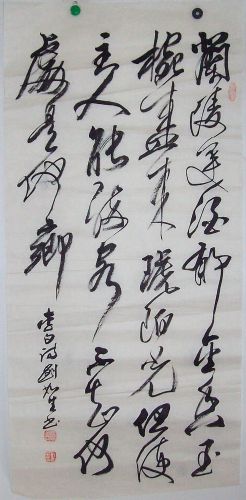 蘭陵美酒郁金香玉
椀盛来琥珀光但使
主人能醉客不知何
處是他鄉
李白詩劉生书